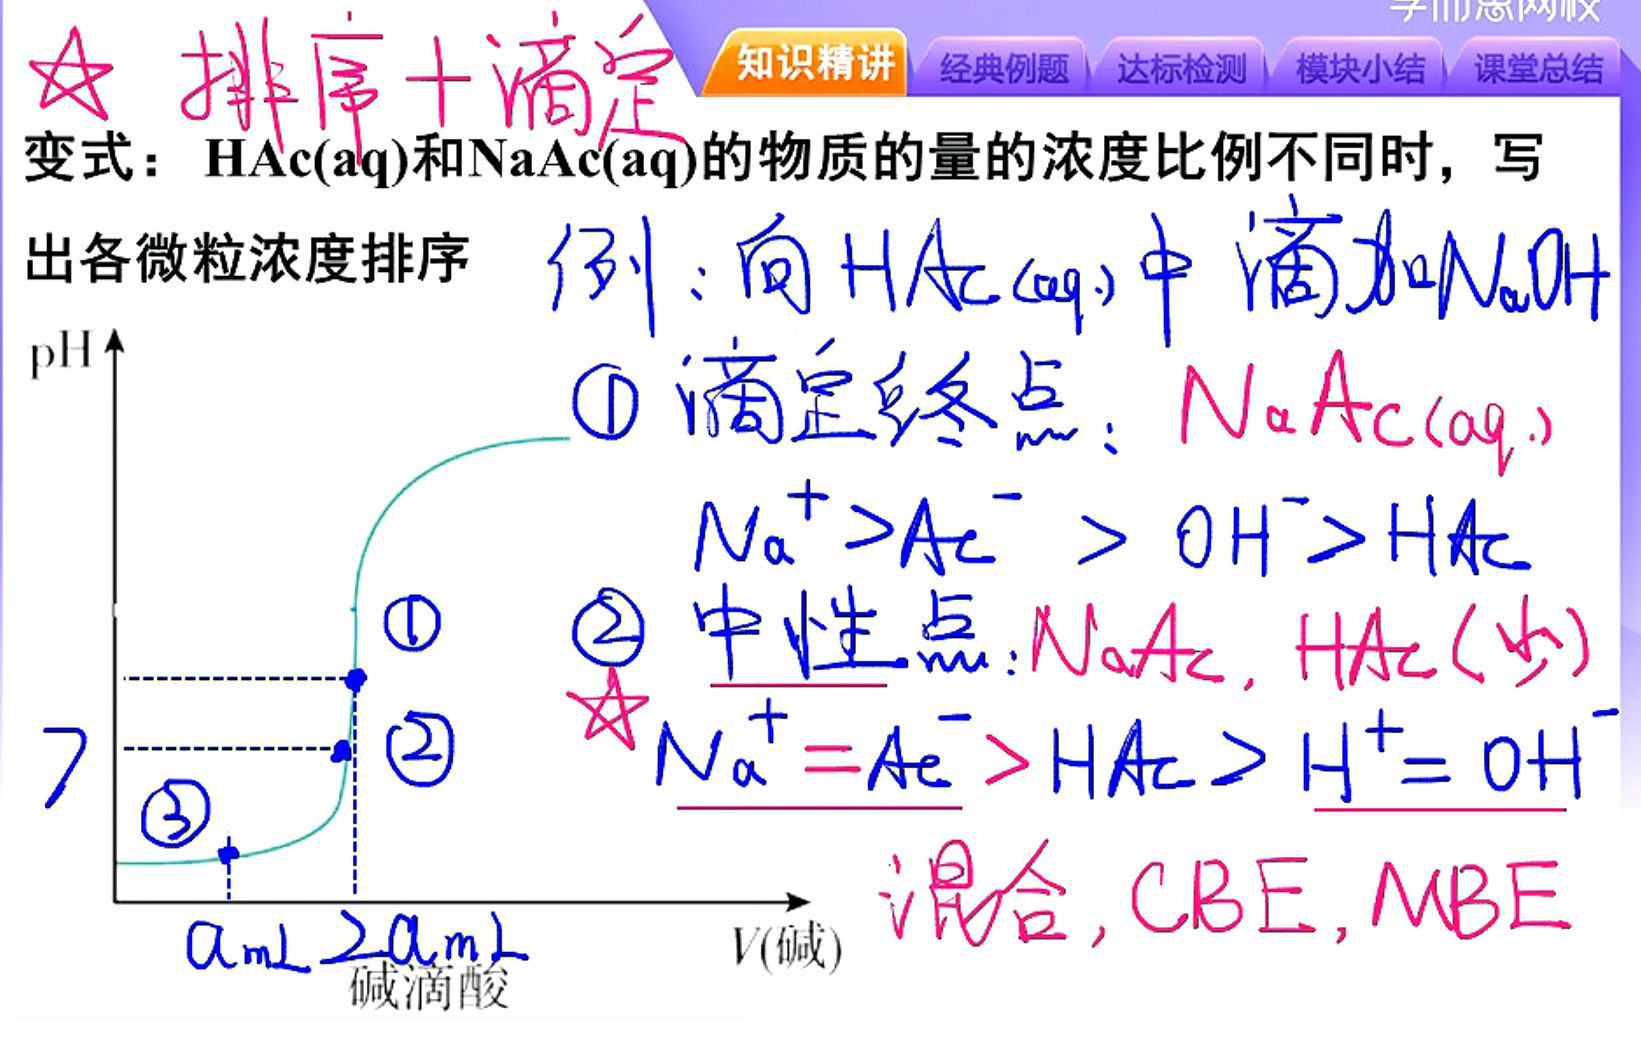 学而思网校
知识精讲 经典例题 达标检测 模块小结 课堂总结
☆ 排序+滴定
变式： HAc(aq)和NaAc(aq)的物质的量的浓度比例不同时，写
出各微粒浓度排序
例：向HAc(aq.)中滴加NaOH
pH
① 滴定终点：NaAc(aq.)
Na⁺>Ac⁻ > OH⁻>HAc
①
② 中性点：NaAc, HAc(少)
7
②
☆ Na⁺=Ac⁻>HAc>H⁺=OH⁻
③
混合, CBE, MBE
amL 2amL
V(碱)
碱滴酸